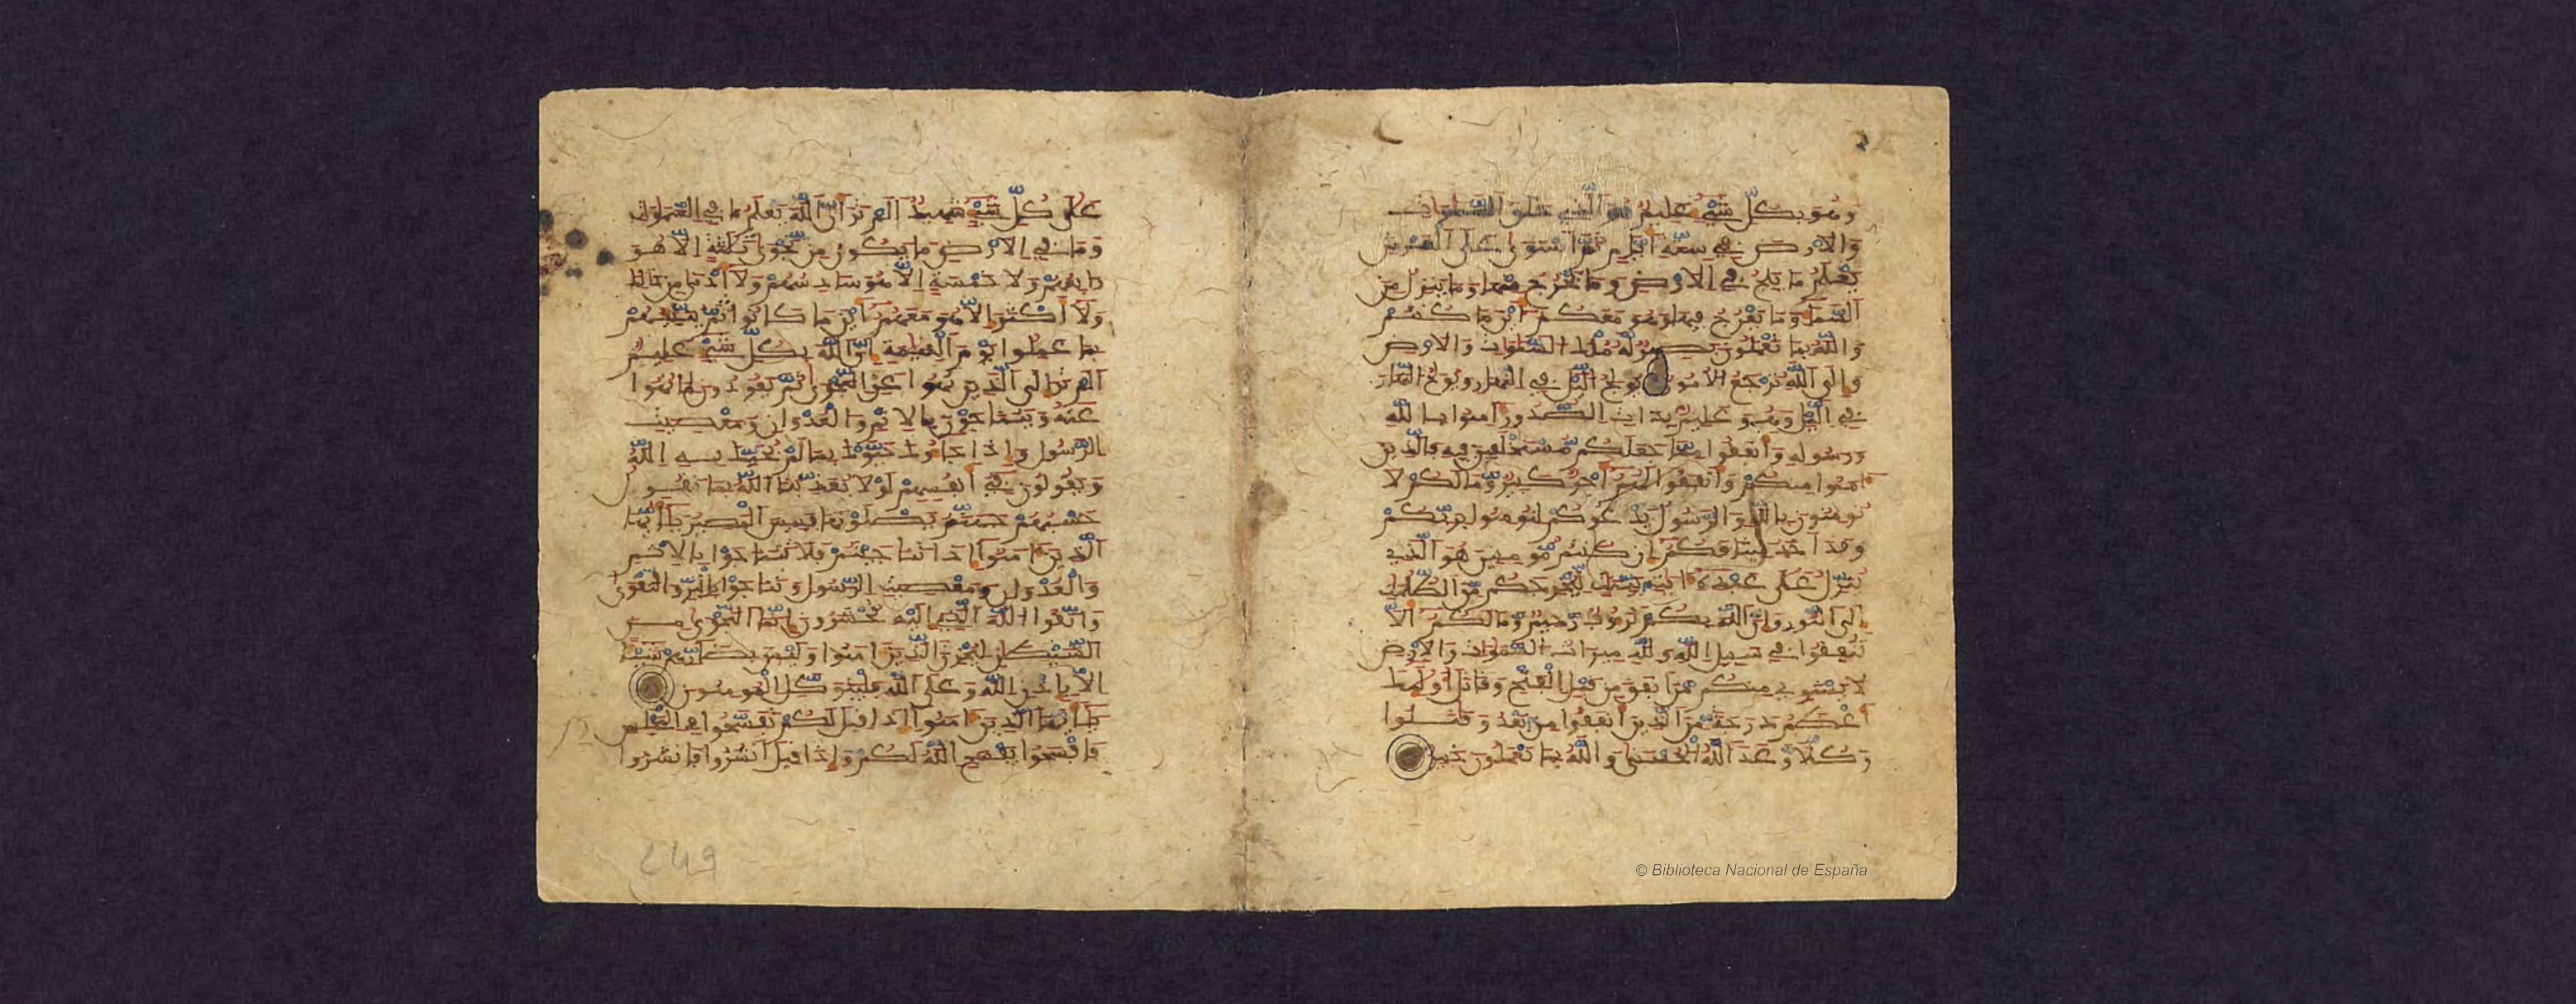 وهو بكل شيء عليم هو الذي خلق السموات
والارض في ستة ايام ثم استوى على العرش
يعلم ما يلج في الارض وما يخرج منها وما ينزل من
السماء وما يعرج فيها وهو معكم اين ما كنتم
والله بما تعملون بصير له ملك السموات والارض
والى الله ترجع الامور يولج اليل في النهار ويولج النهار
في اليل وهو عليم بذات الصدور آمنوا بالله
ورسوله وانفقوا مما جعلكم مستخلفين فيه فالذين
امنوا منكم وانفقوا لهم اجر كبير وما لكم لا
تومنون بالله والرسول يدعوكم لتومنوا بربكم
وقد اخذ ميثاقكم ان كنتم مومنين هو الذي
ينزل على عبده ايت بينت ليخرجكم من الظلمت
الى النور وان الله بكم لرءوف رحيم وما لكم الا
تنفقوا في سبيل الله ولله ميراث السموات والارض
لا يستوي منكم من انفق من قبل الفتح وقاتل اوليك
اعظم درجة من الذين انفقوا من بعد وقتلوا
وكلا وعد الله الحسنى والله بما تعملون خبير
على كل شيء شهيد الم تر ان الله يعلم ما في السموات
وما في الارض ما يكون من نجوى ثلثة الا هو
رابعهم ولا خمسة الا هو سادسهم ولا ادنى من ذالك
ولا اكثر الا هو معهم اين ما كانوا ثم ينبيهم
بما عملوا يوم القيمة ان الله بكل شيء عليم
الم تر الى الذين نهوا عن النجوى ثم يعودون لما نهوا
عنه ويتناجون بالاثم والعدوان ومعصيت
الرسول واذا جاءوك حيوك بما لم يحيك به الله
ويقولون في انفسهم لولا يعذبنا الله بما نقول
حسبهم جهنم يصلونها فبيس المصير يايها
الذين امنوا اذا تناجيتم فلا تتناجوا بالاثم
والعدوان ومعصيت الرسول وتناجوا بالبر والتقوى
واتقوا الله الذي اليه تحشرون انما النجوى من
الشيطان ليحزن الذين امنوا وليس بضارهم شيئا
الا باذن الله وعلى الله فليتوكل المومنون
يايها الذين امنوا اذا قيل لكم تفسحوا في المجلس
فافسحوا يفسح الله لكم واذا قيل انشزوا فانشزوا
249
© Biblioteca Nacional de España